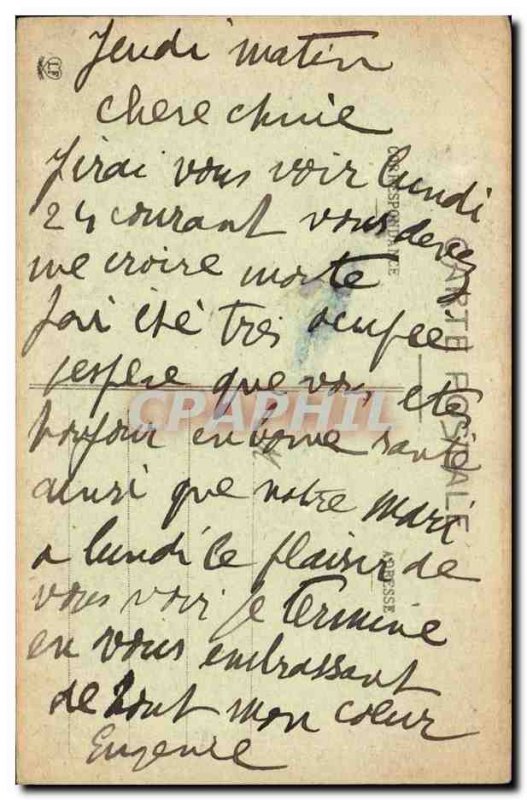 Jeudi matin
chere amie
J'irai vous voir lundi
24 courant vous devez
me croire morte
j'ai été tres ocupée
j'espere que vous ete
toujour en bonne santé
ainsi que votre mari
a lundi le plaisir de
vous voir je termine
en vous embrassant
de tout mon coeur
Eugenie
CARTE POSTALE
CORRESPONDANCE
ADRESSE
CPAPHIL